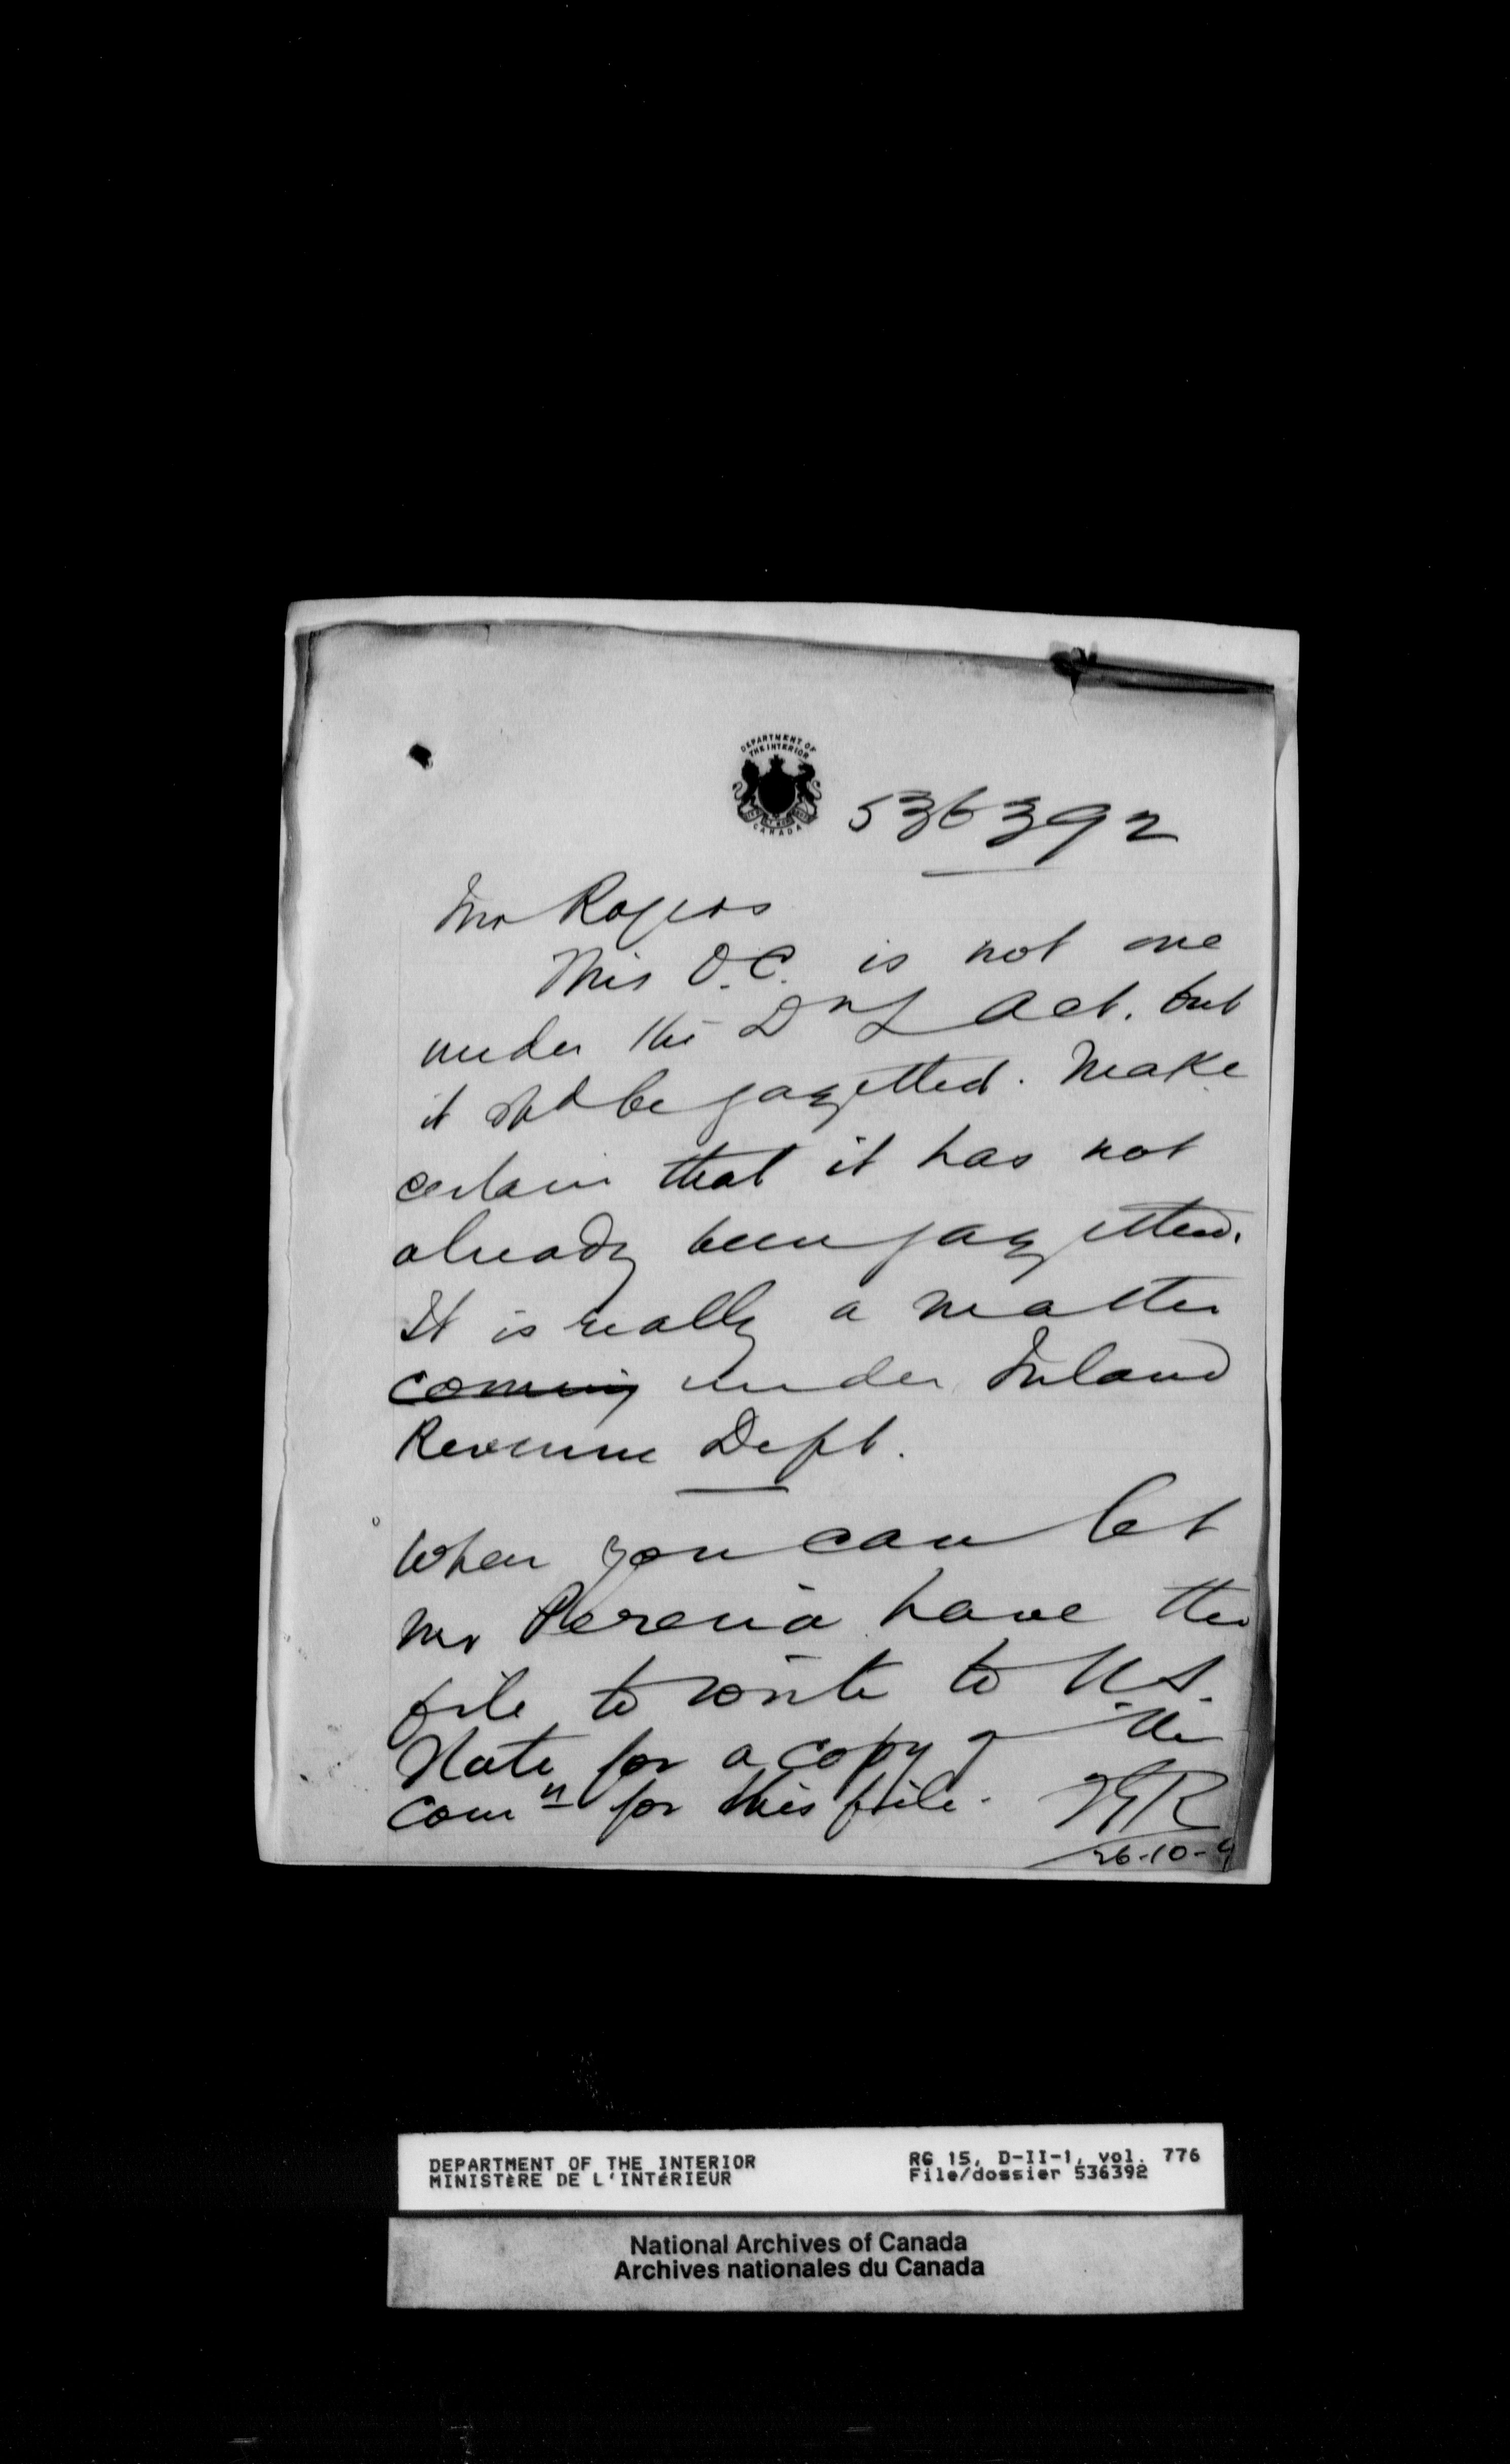 DEPARTMENT OF
THE INTERIOR
CANADA
536392
Mr Rogers
This O.C. is not one
under the Dn L Act. but
it shd be gazetted. Make
certain that it has not
already been gazetted.
It is really a matter
coming under Inland
Revenue Dept.
When you can let
Mr Pereira have the
file to write to U.S.
Note for a copy of the
comn for this file.
26-10-9
DEPARTMENT OF THE INTERIOR
MINISTÈRE DE L'INTÉRIEUR
RG 15, D-II-1, vol. 776
File/dossier 536392
National Archives of Canada
Archives nationales du Canada